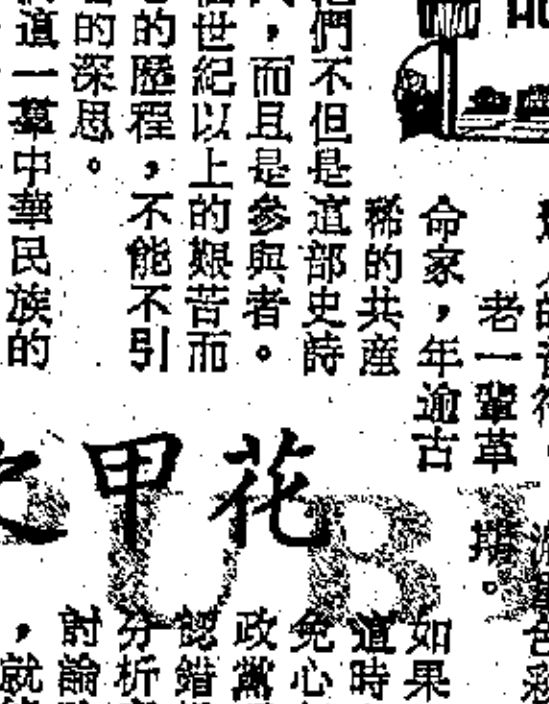 老一輩革
命家，年逾古
稀的共産
們不但是這部史詩
，而且是參與者。
世紀以上的艱苦而
的歷程，不能不引
的深思。
這一幕中華民族的
花甲
UB
期。
如果
這時
免心
政黨
認錯
分析
討論
，就